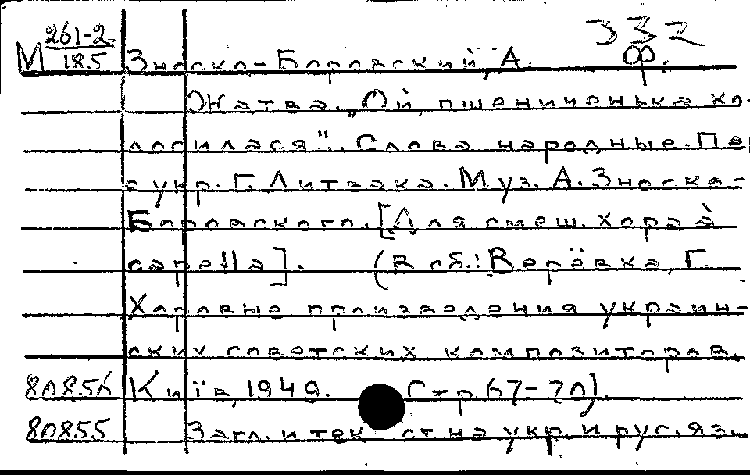 М 261-2 / 185 Зноско-Боровский, А. 332 ф.
Жатва. „Ой, пшениченька ко-
лосилася". Слова народные. Пер.
с укр. Г. Литвака. Муз. А. Зноска-
Боровского. [Для смеш. хора à
capella]. (В сб.: Верёвка, Г.
Хоровые произведения украин-
ских советских композиторов.
Київ, 1949. Стр. 67-70].
80855 Загл. и текст на укр. и рус. яз.